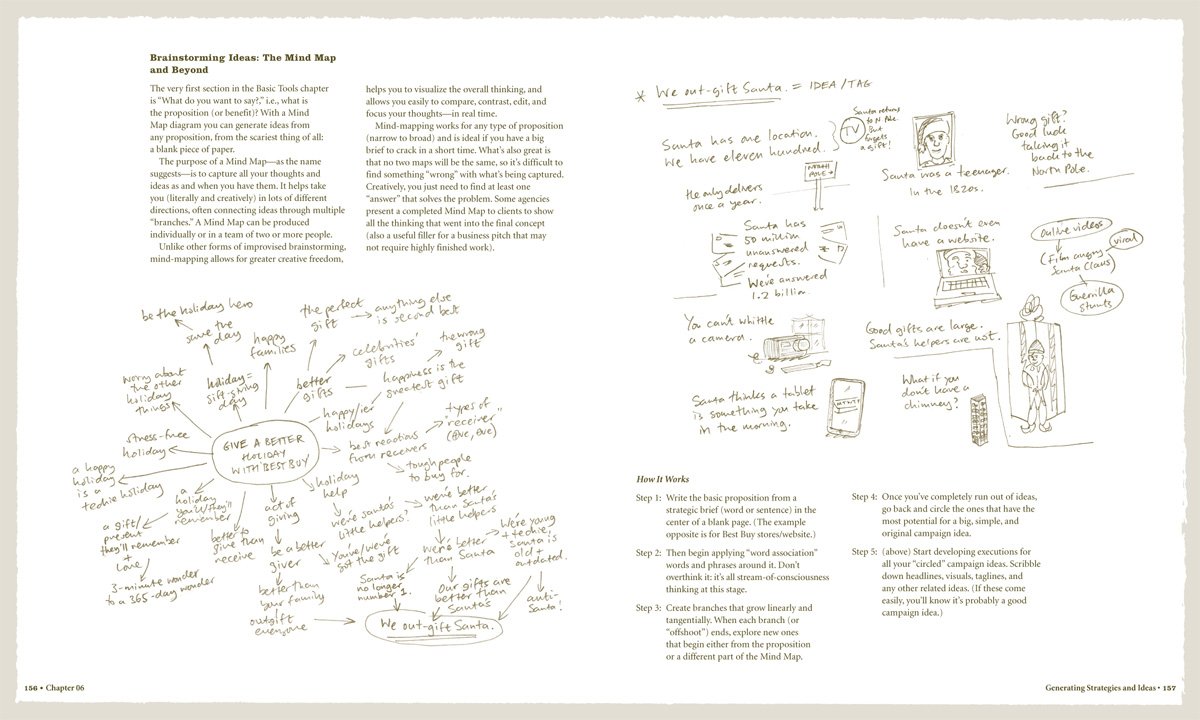 Brainstorming Ideas: The Mind Map
and Beyond
The very first section in the Basic Tools chapter
is “What do you want to say?,” i.e., what is
the proposition (or benefit)? With a Mind
Map diagram you can generate ideas from
any proposition, from the scariest thing of all:
a blank piece of paper.
The purpose of a Mind Map—as the name
suggests—is to capture all your thoughts and
ideas as and when you have them. It helps take
you (literally and creatively) in lots of different
directions, often connecting ideas through multiple
“branches.” A Mind Map can be produced
individually or in a team of two or more people.
Unlike other forms of improvised brainstorming,
mind-mapping allows for greater creative freedom,
helps you to visualize the overall thinking, and
allows you easily to compare, contrast, edit, and
focus your thoughts—in real time.
Mind-mapping works for any type of proposition
(narrow to broad) and is ideal if you have a big
brief to crack in a short time. What’s also great is
that no two maps will be the same, so it’s difficult to
find something “wrong” with what’s being captured.
Creatively, you just need to find at least one
“answer” that solves the problem. Some agencies
present a completed Mind Map to clients to show
all the thinking that went into the final concept
(also a useful filler for a business pitch that may
not require highly finished work).
be the holiday hero
save the
day
happy
families
the perfect
gift
anything else
is second best
celebrities'
gifts
the wrong
gift
worry about
the other
holiday
things
holiday =
gift-giving
day
better
gifts
happiness is the
greatest gift
happy/ier
holidays
stress-free
holiday
GIVE A BETTER
HOLIDAY
WITH BEST BUY
best reactions
from receivers
types of
receiver
tough people
to buy for.
a happy
holiday
is a
techie holiday
a
holiday
you'll/they'll
remember
act of
giving
holiday
help
a gift/
present
they'll remember
+
love
better to
give than
receive
be a better
giver
we're santa's
little helpers?
we're better
than Santa's
little helpers
You've/we've
got the gift
we're better
than Santa
We're young
+ techie,
Santa is
old +
outdated.
3-minute wonder
to a 365-day wonder
better than
your family
Santa is
no longer
number 1.
Our gifts are
better than
Santa's
anti-
Santa!
outgift
everyone
We out-gift Santa.
156 • Chapter 06
* We out-gift Santa. = IDEA/TAG
Santa has one location.
We have eleven hundred.
TV
Santa returns
to N. Pole.
But
forgets
a gift!
Santa was a teenager.
in the 1820s.
Wrong gift?
Good luck
taking it
back to the
North Pole.
He only delivers
once a year.
NORTH
POLE
Santa has
50 million
unanswered
requests.
We've answered
1.2 billion
Santa doesn't even
have a website.
Online videos
viral
(Film angry
Santa Claus)
Guerrilla
stunts
You can't whittle
a camera.
Good gifts are large.
Santa's helpers are not.
Santa thinks a tablet
is something you take
in the morning.
What if you
don't have a
chimney?
How It Works
Step 1: Write the basic proposition from a
strategic brief (word or sentence) in the
center of a blank page. (The example
opposite is for Best Buy stores/website.)
Step 2: Then begin applying “word association”
words and phrases around it. Don’t
overthink it: it’s all stream-of-consciousness
thinking at this stage.
Step 3: Create branches that grow linearly and
tangentially. When each branch (or
“offshoot”) ends, explore new ones
that begin either from the proposition
or a different part of the Mind Map.
Step 4: Once you’ve completely run out of ideas,
go back and circle the ones that have the
most potential for a big, simple, and
original campaign idea.
Step 5: (above) Start developing executions for
all your “circled” campaign ideas. Scribble
down headlines, visuals, taglines, and
any other related ideas. (If these come
easily, you’ll know it’s probably a good
campaign idea.)
Generating Strategies and Ideas • 157